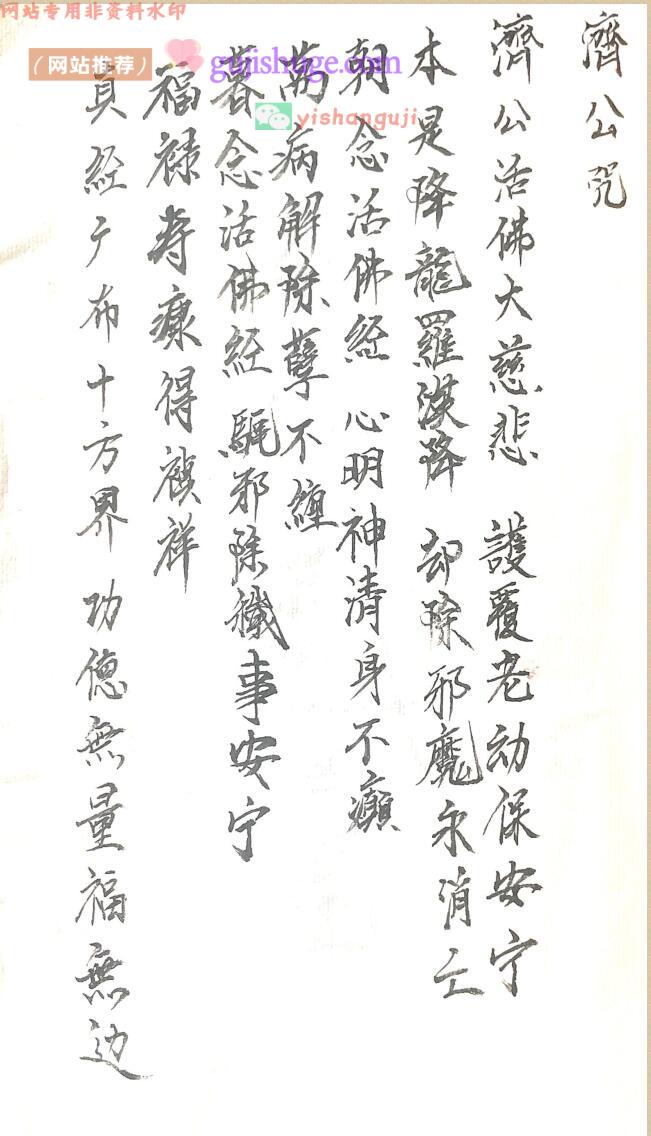 网站专用非资料水印
（网站推荐） gujishuge.com
yishanguji
濟公咒
濟公活佛大慈悲 護覆老幼保安宁
本是降龍羅漢降 却除邪魔永消亡
朝念活佛經 心明神清身不癲
萬病解除孽不纏
暮念活佛經 駈邪除穢事安宁
福禄寿康得禎祥
真经广布十方界 功德無量福無边